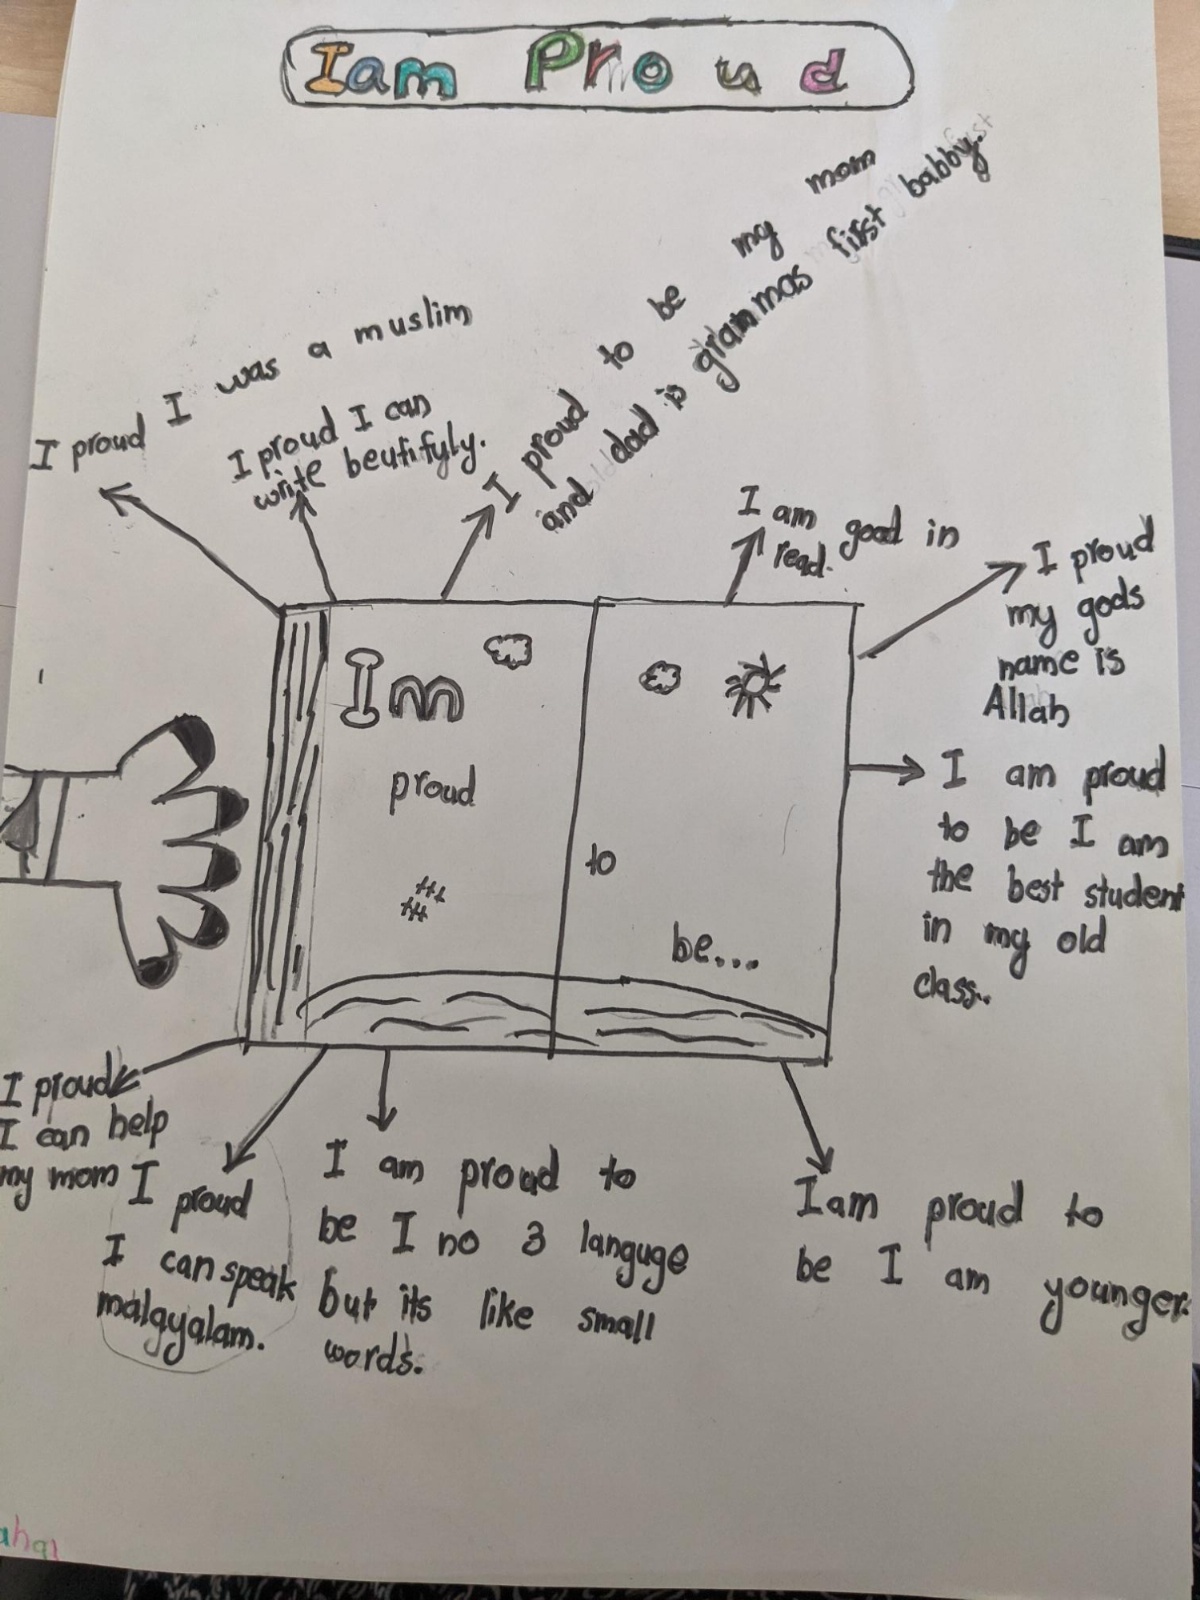 I am Proud
I proud I was a muslim
I proud I can
write beutifyly.
I proud to be my mom
and dad is grammas first babby.
I am good in
read.
I proud
my gods
name is
Allah
Im
proud
to
be...
I am proud
to be I am
the best student
in my old
class..
I proud
I can help
my mom
I proud
I can speak
malgyalam.
I am proud to
be I no 3 languge
but its like small
words.
I am proud to
be I am younger.